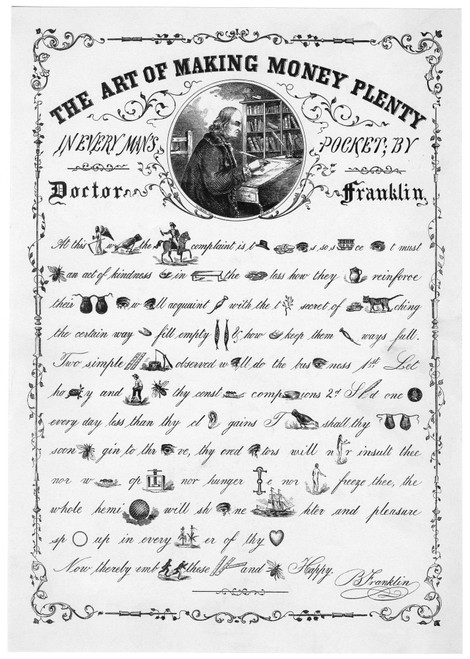 THE ART OF MAKING MONEY PLENTY
IN EVERY MAN'S POCKET; BY
Doctor Franklin.
At this w the complaint is t s, so s ce t must
an act of kindness in the less how they reinforce
their w ll acquaint with the t secret of ching
the certain way fill empty & how keep them ways full.
Two simple observed w ll do the bus ness 1st Let
ho y and thy const comp ions 2d S d one
every day less than thy cl gains T shall thy
soon gin to thr ve, thy cred tors will n r insult thee
nor w op nor hunger e nor freeze thee, the
whole hemi will sh ne hter and pleasure
sp up in every er of thy
Now thereby emb these and Happy.
B Franklin